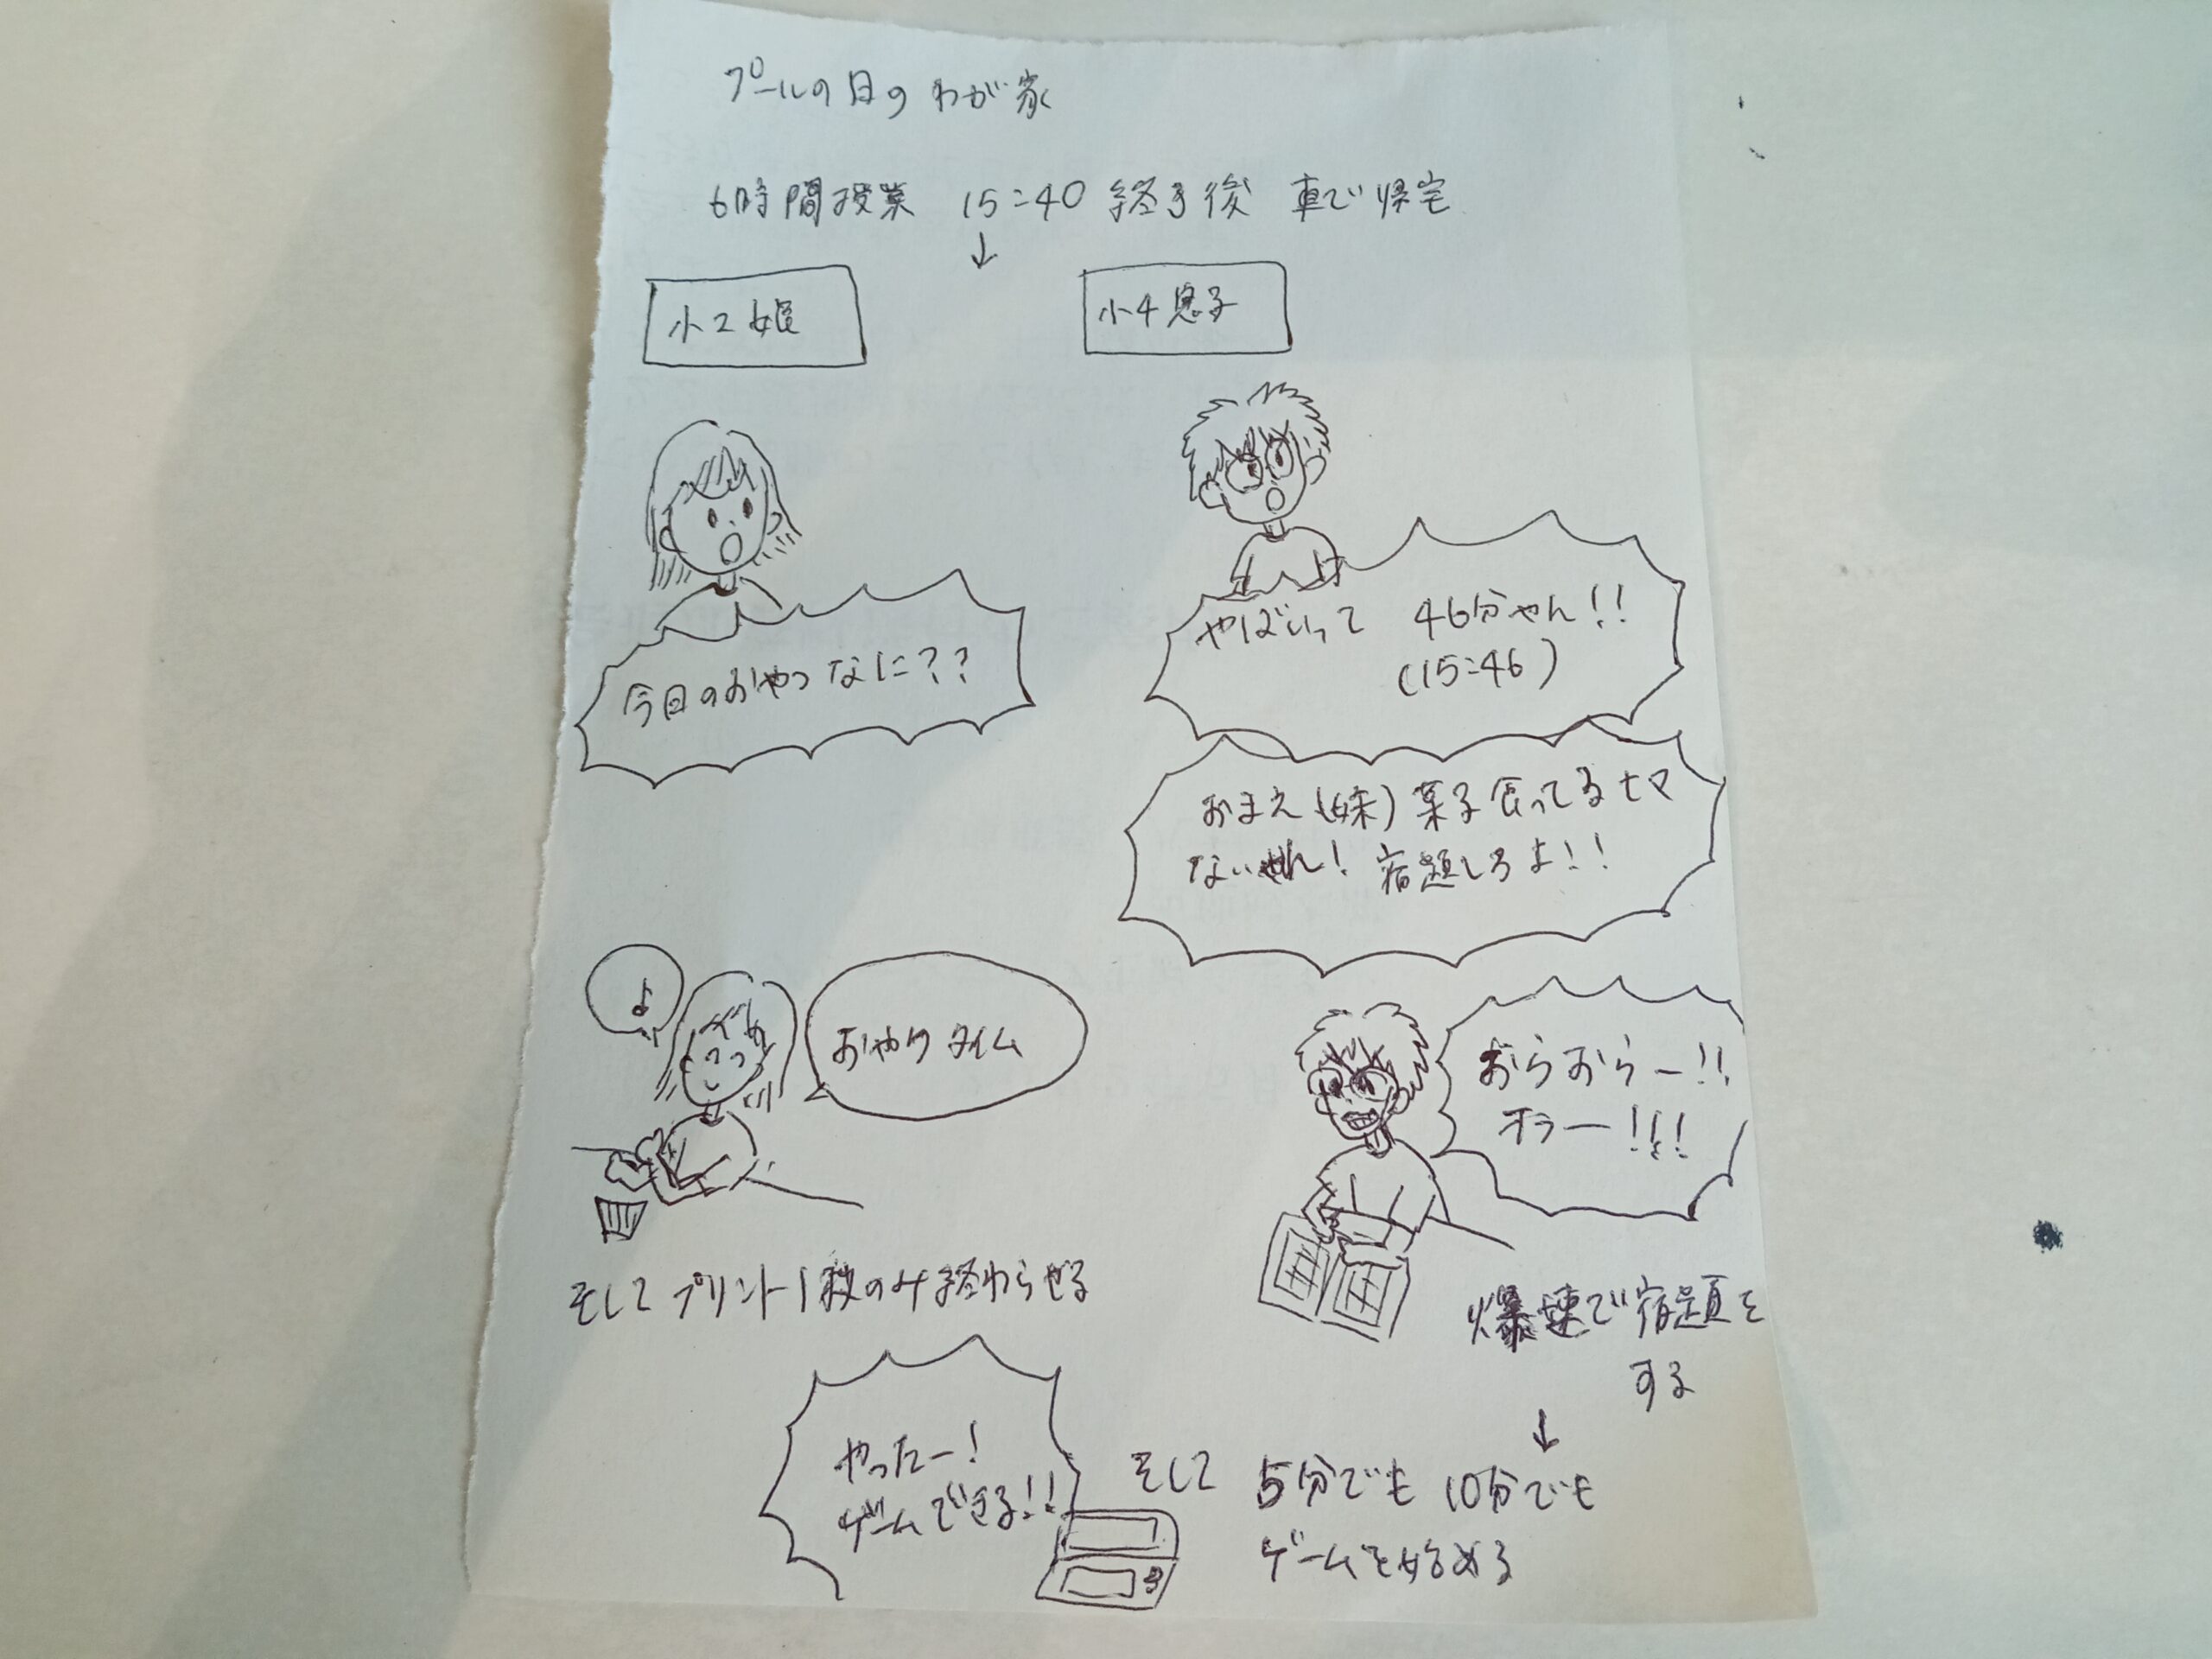 プールの日のわが家
6時間授業 15:40 終了後 車で帰宅
↓
小2姫
小4息子
今日のおやつなに??
やばいって 46分やん!!
(15:46)
おまえ(妹)菓子食ってるヒマ
ないやん! 宿題しろよ!!
♪
おやつタイム
おらおらー!!
オラー!!!
そしてプリント1枚のみ終わらせる
爆速で宿題を
する
↓
やったー!
ゲームできる!!
そして 5分でも 10分でも
ゲームを始める